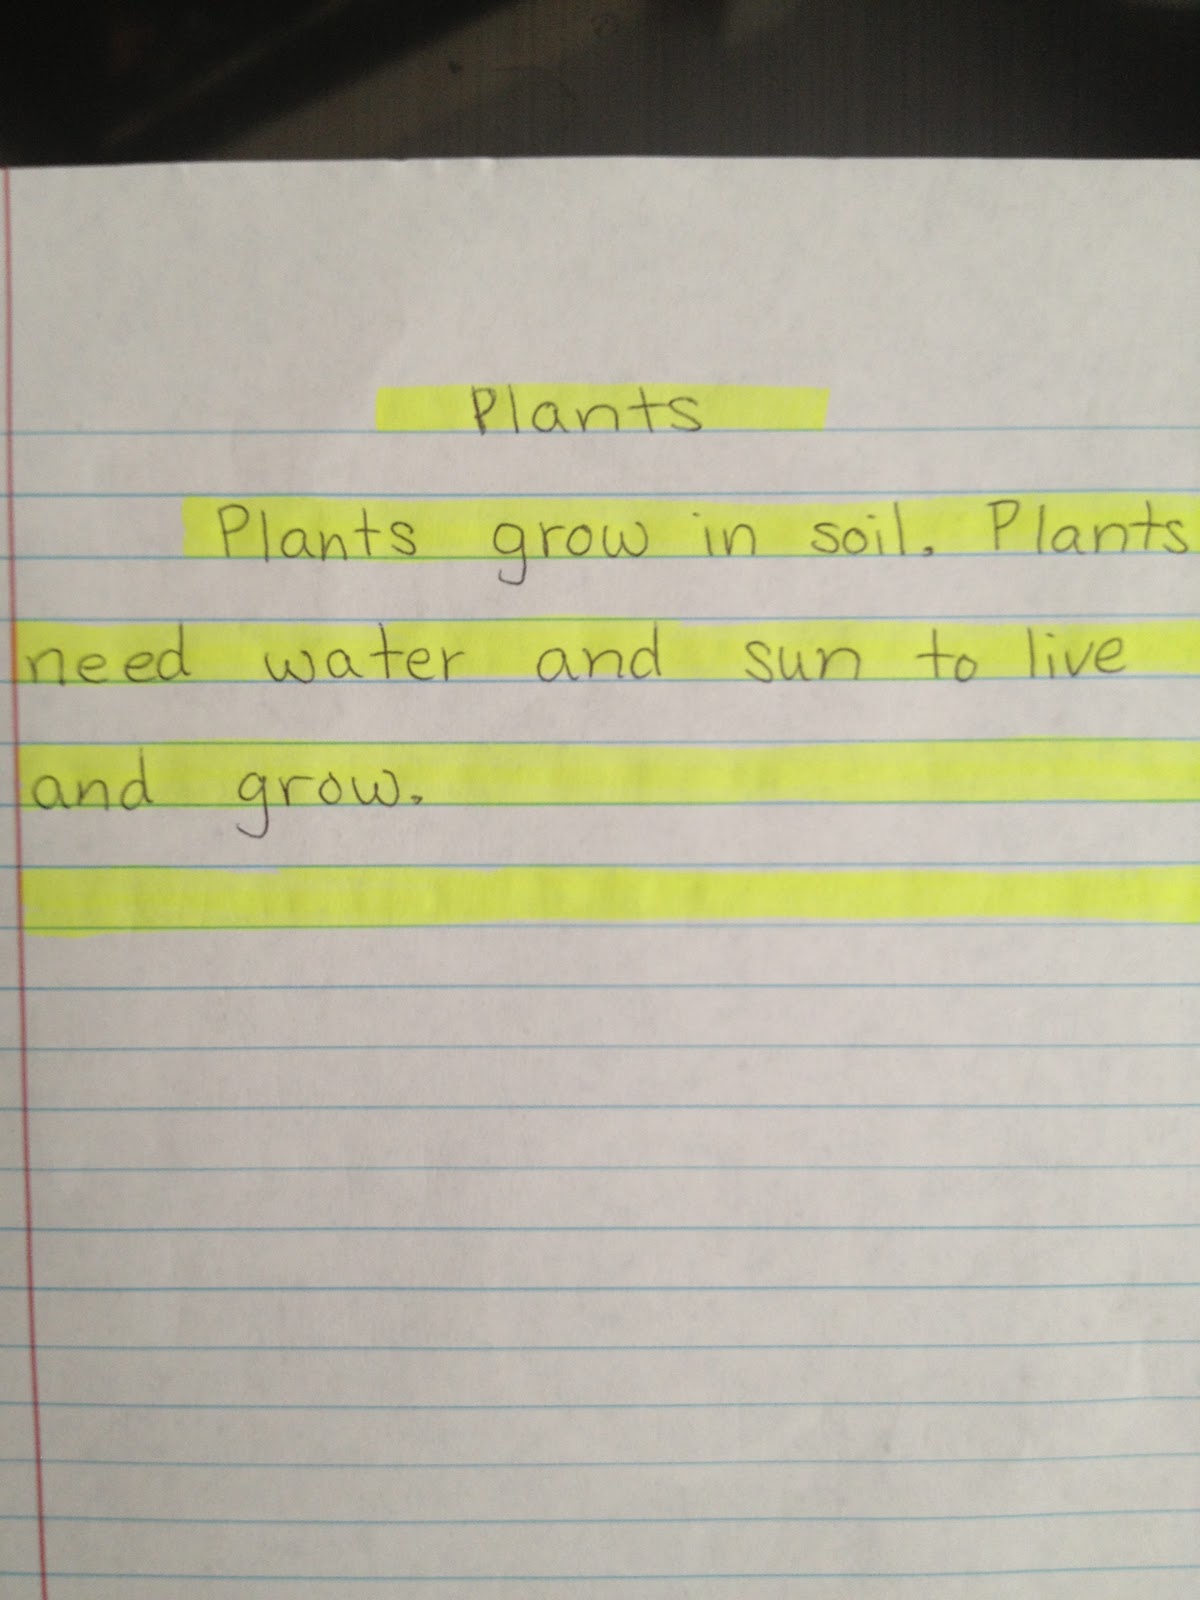 Plants
Plants grow in soil. Plants
need water and sun to live
and grow.